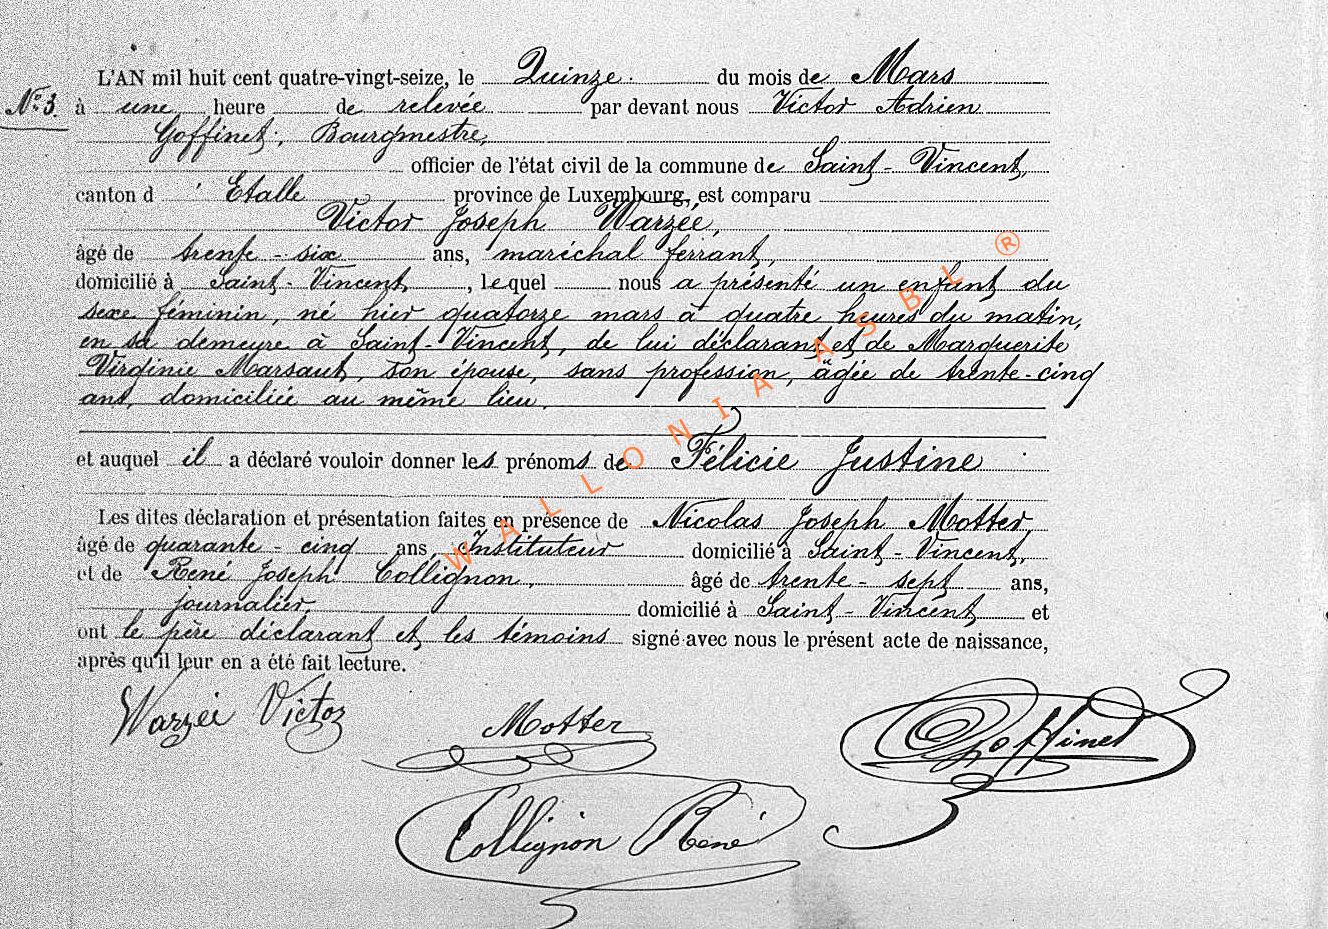 L'AN mil huit cent quatre-vingt-seize, le Quinze du mois de Mars
N° 3. à une heure de relevée par devant nous Victor Adrien
Goffinet, Bourgmestre,
officier de l'état civil de la commune de Saint-Vincent,
canton d'Etalle province de Luxembourg, est comparu
Victor Joseph Warzée,
âgé de trente-six ans, maréchal ferrant,
domicilié à Saint-Vincent, lequel nous a présenté un enfant du
sexe féminin, né hier quatorze mars à quatre heures du matin,
en sa demeure à Saint-Vincent, de lui déclarant et de Marguerite
Virginie Marsaut, son épouse, sans profession, âgée de trente-cinq
ans, domiciliée au même lieu.
et auquel il a déclaré vouloir donner les prénoms de Félicie Justine
Les dites déclaration et présentation faites en présence de Nicolas Joseph Motter,
âgé de quarante-cinq ans, Instituteur domicilié à Saint-Vincent,
et de René Joseph Collignon, âgé de trente-sept ans,
journalier, domicilié à Saint-Vincent et
ont le père déclarant et les témoins signé avec nous le présent acte de naissance,
après qu'il leur en a été fait lecture.
Warzée Victor
Motter
Goffinet
Collignon René
WALLONIA ASBL ®